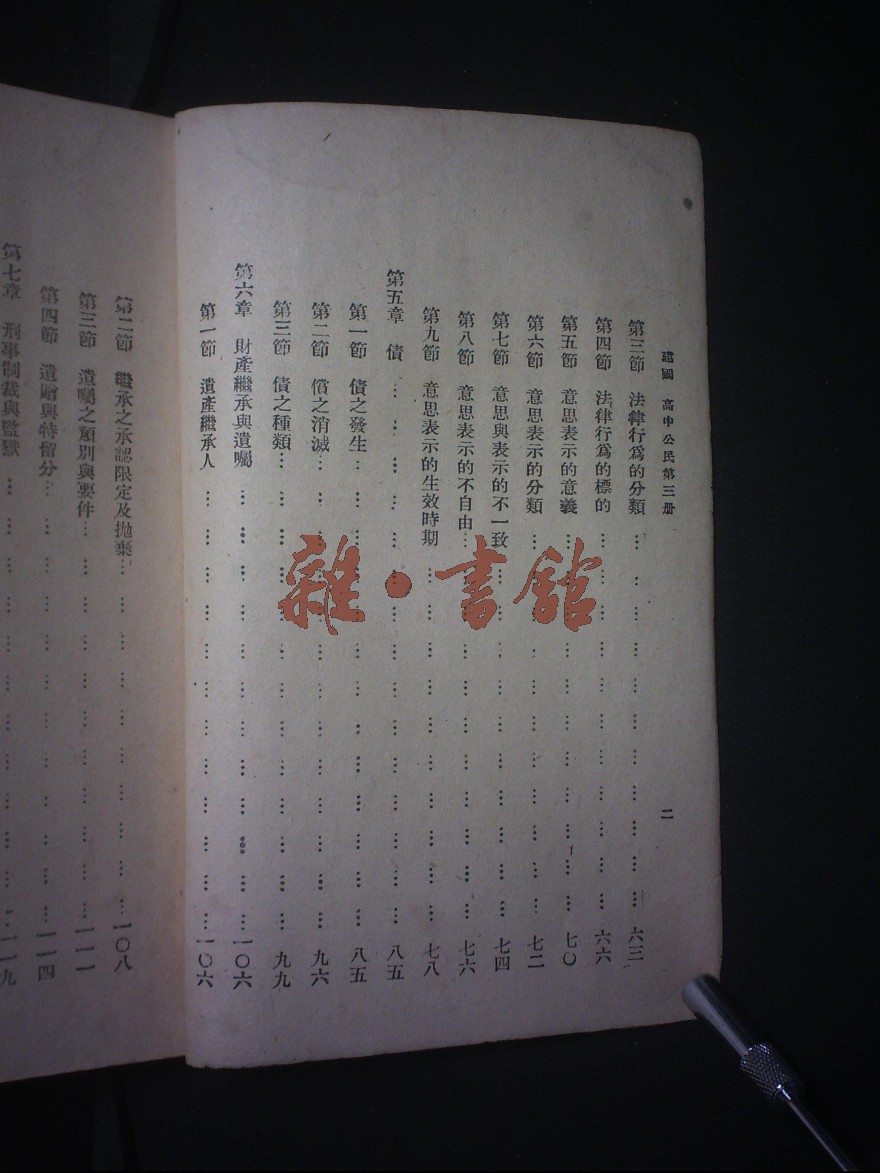 建國 高中公民第三册
二
第三節 法律行爲的分類 … … … … … … … … … … 六三
第四節 法律行爲的標的 … … … … … … … … … … 六六
第五節 意思表示的意義 … … … … … … … … … … 七〇
第六節 意思表示的分類 … … … … … … … … … … 七二
第七節 意思與表示的不一致 … … … … … … … … … 七四
第八節 意思表示的不自由 … … … … … … … … … … 七六
第九節 意思表示的生效時期 … … … … … … … … … 七八
第五章 債 … … … … … … … … … … … … … … 八五
第一節 債之發生 … … … … … … … … … … … … 八五
第二節 債之消滅 … … … … … … … … … … … … 九六
第三節 債之種類 … … … … … … … … … … … … 九九
第六章 財產繼承與遺囑 … … … … … … … … … … … 一〇六
第一節 遺產繼承人 … … … … … … … … … … … … 一〇六
第二節 繼承之承認限定及拋棄 … … … … … … … … … 一〇八
第三節 遺囑之類別與要件 … … … … … … … … … … 一一一
第四節 遺贈與特留分 … … … … … … … … … … … 一一四
第七章 刑事制裁與監獄 … … … … … … … … … … … 一一九
雜·書館